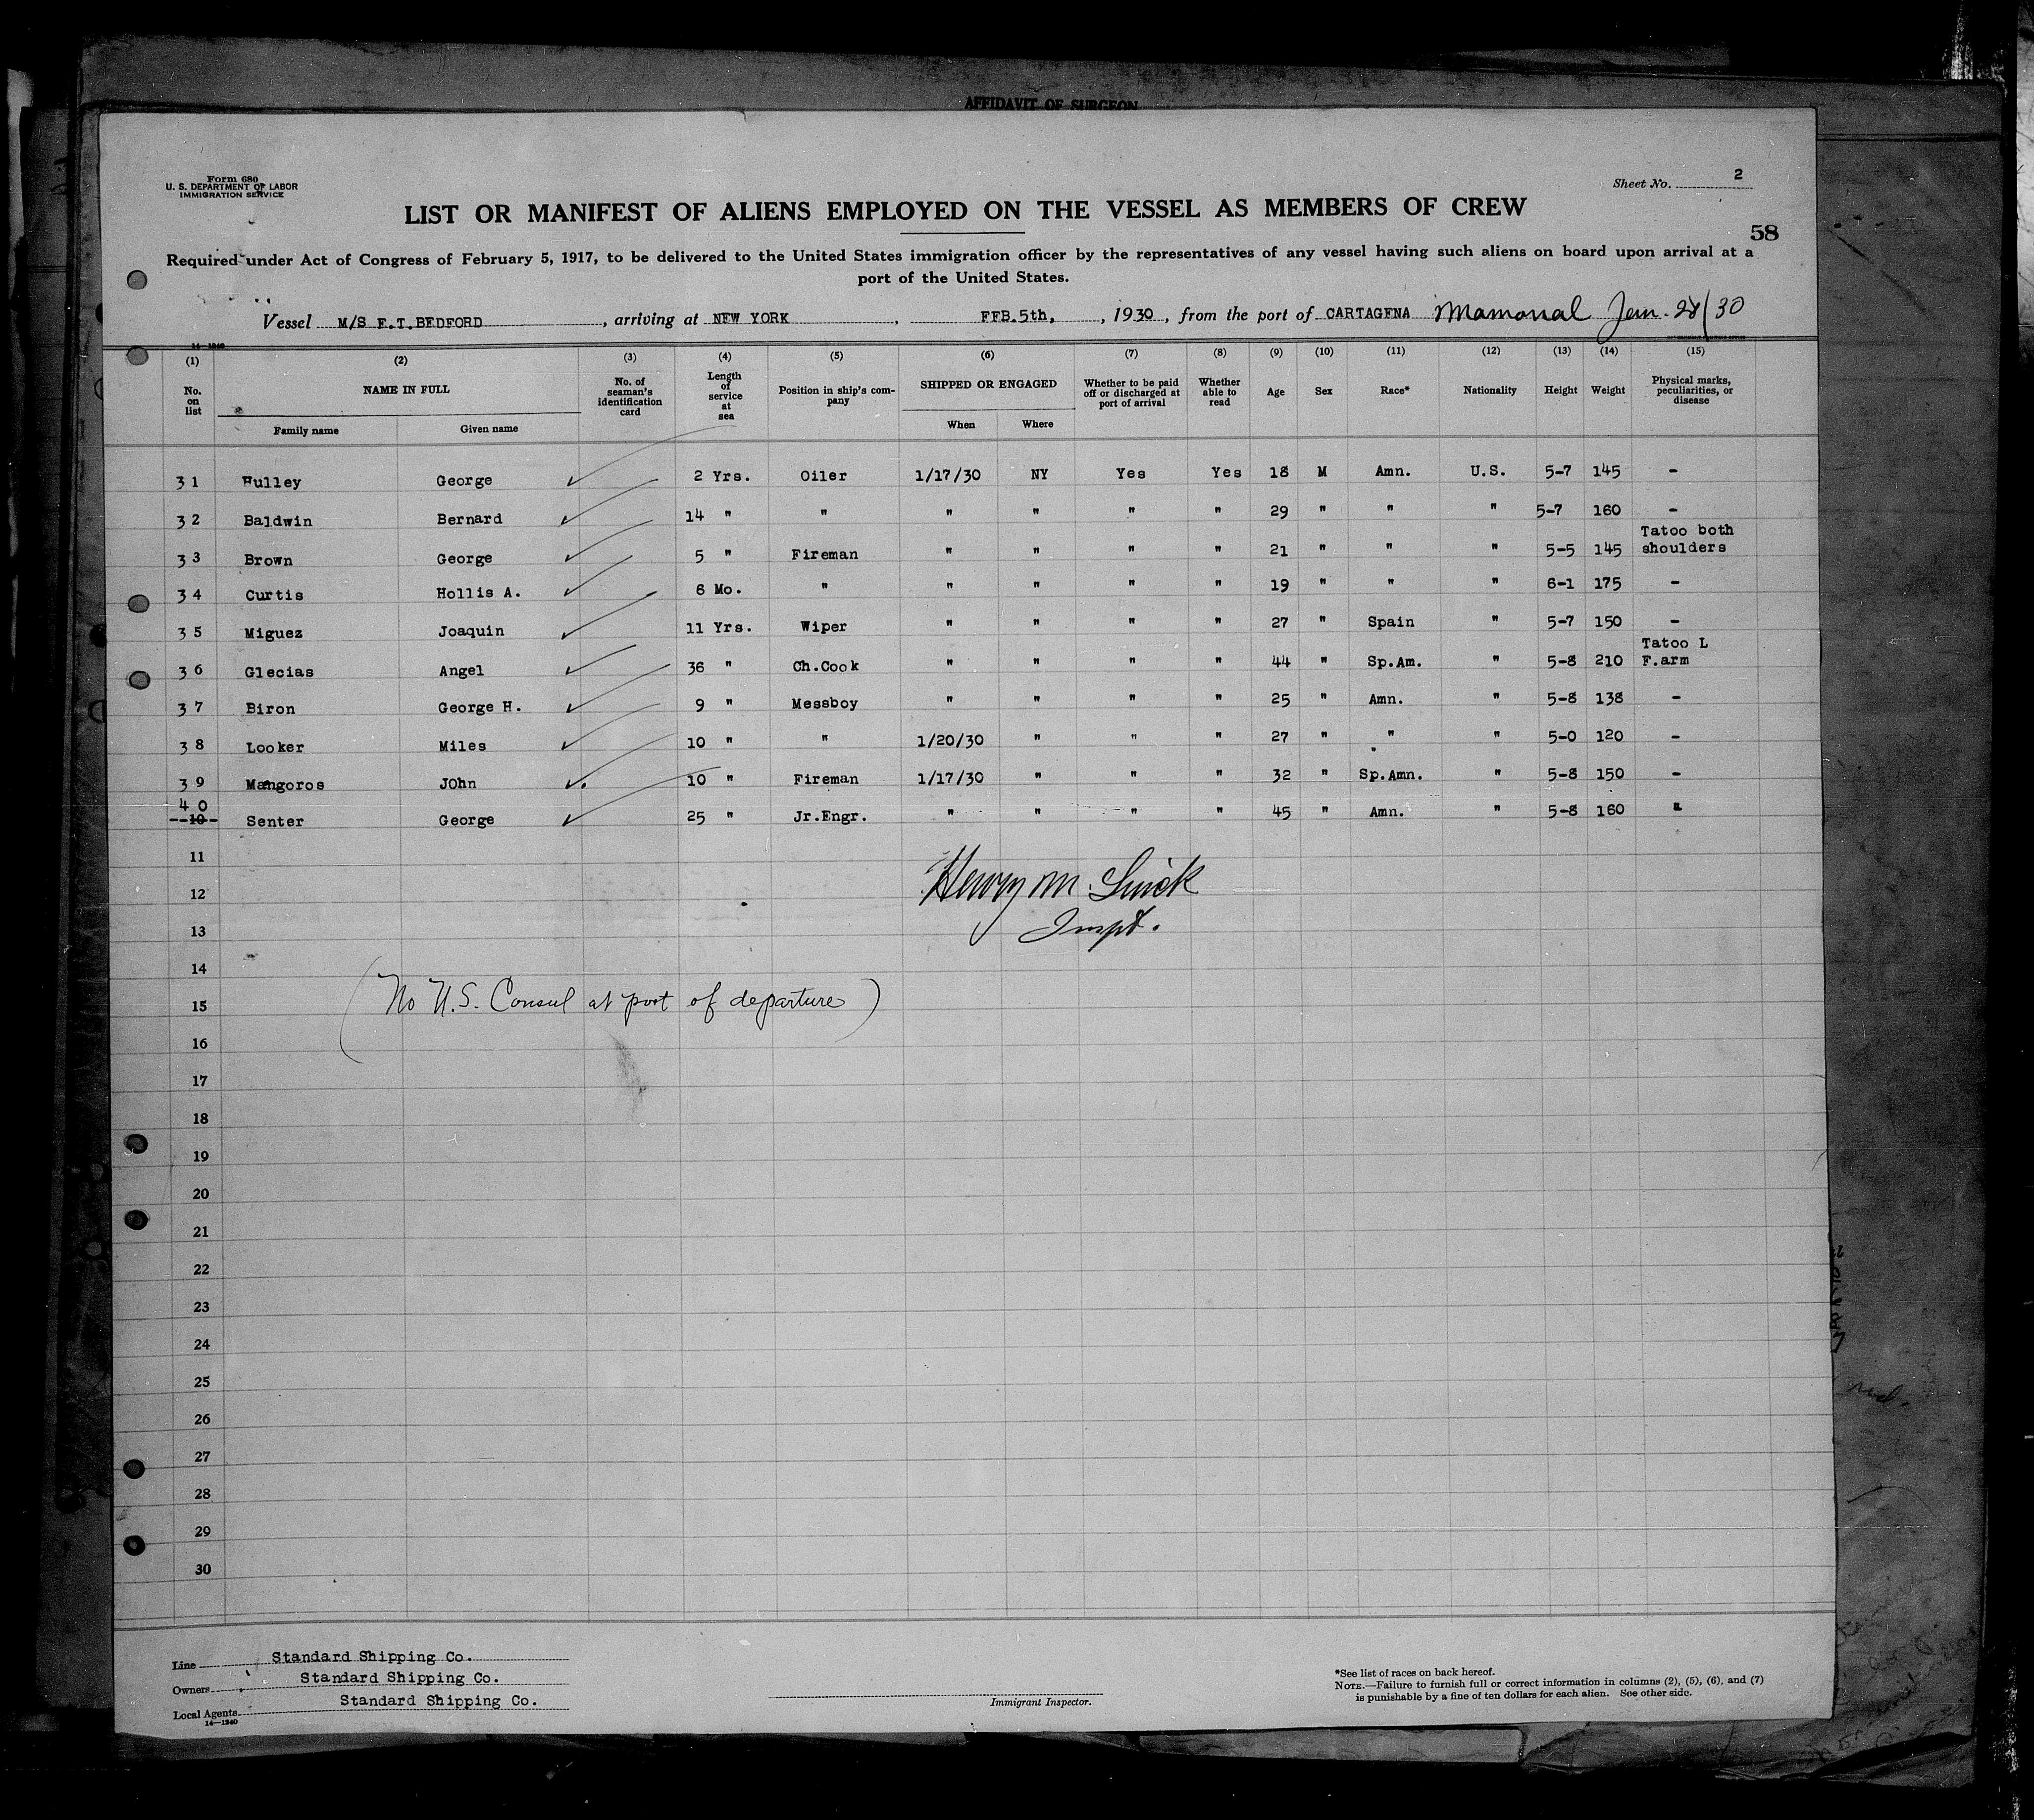 AFFIDAVIT OF SURGEON
Form 680
U. S. DEPARTMENT OF LABOR
IMMIGRATION SERVICE
Sheet No. 2
LIST OR MANIFEST OF ALIENS EMPLOYED ON THE VESSEL AS MEMBERS OF CREW
58
Required under Act of Congress of February 5, 1917, to be delivered to the United States immigration officer by the representatives of any vessel having such aliens on board upon arrival at a
port of the United States.
Vessel M/S E.T.BEDFORD, arriving at NEW YORK, FEB.5th, 1930, from the port of CARTAGENA Mamonal Jan. 28/30
14—1240
(1) (2) (3) (4) (5) (6) (7) (8) (9) (10) (11) (12) (13) (14) (15)
No. on list NAME IN FULL No. of seaman's identification card Length of service at sea Position in ship's company SHIPPED OR ENGAGED Whether to be paid off or discharged at port of arrival Whether able to read Age Sex Race* Nationality Height Weight Physical marks, peculiarities, or disease
Family name Given name When Where
31 Hulley George 2 Yrs. Oiler 1/17/30 NY Yes Yes 18 M Amn. U.S. 5-7 145 -
32 Baldwin Bernard 14 " " " " " " 29 " " " 5-7 160 -
33 Brown George 5 " Fireman " " " " 21 " " " 5-5 145 Tatoo both shoulders
34 Curtis Hollis A. 6 Mo. " " " " " 19 " " " 6-1 175 -
35 Miguez Joaquin 11 Yrs. Wiper " " " " 27 " Spain " 5-7 150 -
36 Glecias Angel 36 " Ch.Cook " " " " 44 " Sp.Am. " 5-8 210 Tatoo L F.arm
37 Biron George H. 9 " Messboy " " " " 25 " Amn. " 5-8 138 -
38 Looker Miles 10 " " 1/20/30 " " " 27 " " " 5-0 120 -
39 Mangoros JOhn 10 " Fireman 1/17/30 " " " 32 " Sp.Amn. " 5-8 150 -
40
--10- Senter George 25 " Jr.Engr. " " " " 45 " Amn. " 5-8 160
11
12
Henry M.
13
Inspt.
14
15
(No U.S. Consul at port of departure)
16
17
18
19
20
21
22
23
24
25
26
27
28
29
30
Line Standard Shipping Co.
Owners Standard Shipping Co.
Local Agents Standard Shipping Co.
14—1240
Immigrant Inspector.
*See list of races on back hereof.
NOTE.—Failure to furnish full or correct information in columns (2), (5), (6), and (7)
is punishable by a fine of ten dollars for each alien. See other side.